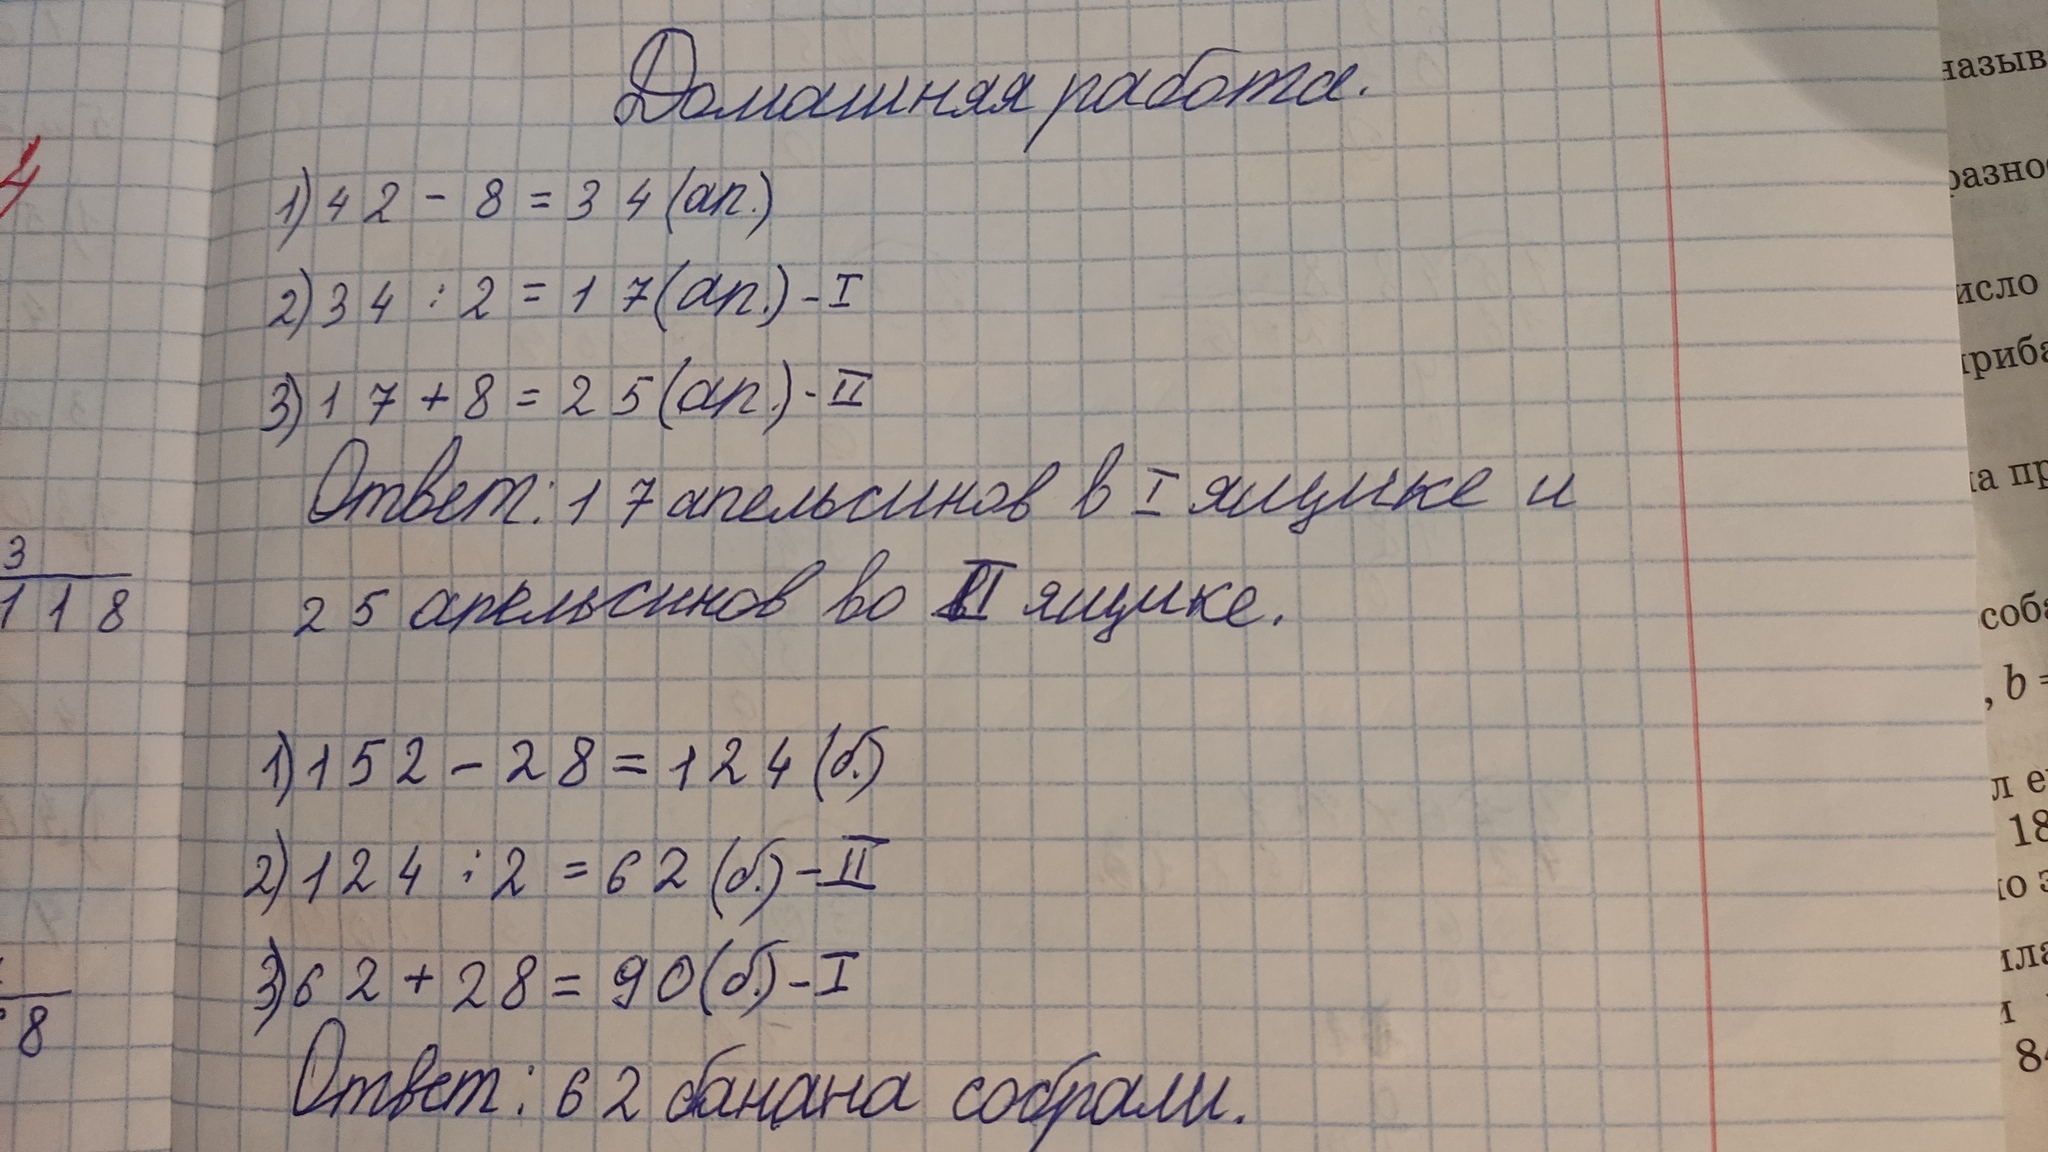 Домашняя работа.
1) 42 - 8 = 34 (ап.)
2) 34 : 2 = 17 (ап.) - I
3) 17 + 8 = 25 (ап.) - II
Ответ: 17 апельсинов в I ящике и
25 апельсинов во II ящике.
1) 152 - 28 = 124 (б.)
2) 124 : 2 = 62 (б.) - II
3) 62 + 28 = 90 (б.) - I
Ответ: 62 банана собрали.
4
3
118
8
назыв
разно
исло
приба
на пр
соба
, b =
л е
18
но з
ила
и
84